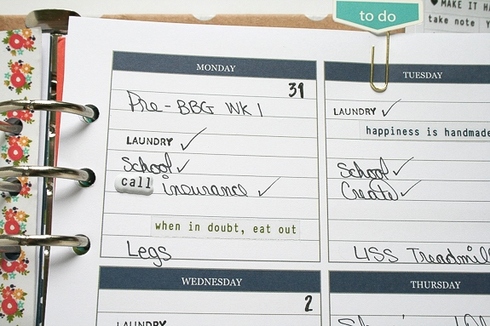 to do
♥ MAKE IT
take note
MONDAY
31
Pre-BBG WK 1
LAUNDRY ✓
School ✓
call insurance ✓
when in doubt, eat out
Legs
TUESDAY
LAUNDRY ✓
happiness is handmade
School ✓
Create ✓
LISS Treadmill
WEDNESDAY
2
LAUNDRY
THURSDAY